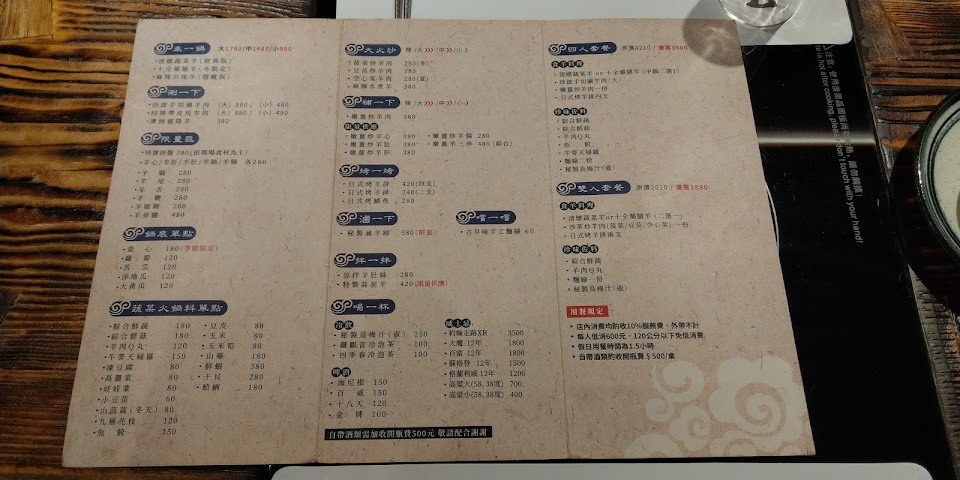 來一鍋 大1780/中1480/小980
•清燉蔬菜羊(經典版)
•十全藥膳羊(冬限定)
•麻辣出城羊(隱藏版)
涮一下
•珍部手切涮羊肉 (大) 880/ (小) 480
•招牌帶皮塊羊肉 (大) 880/ (小) 480
•澳洲霜降羊 380
限量區
•羊心/羊肝/羊肚/羊肺/羊腸 各280
•羊腦 280
•羊尾 280
•羊舌 280
•羊鞭 280
•羊眼睛 280
•羊骨髓 480
鍋底單點
•菜心 180(季節限定)
•蘿蔔 120
•苦瓜 120
•洋地瓜 120
•大黃瓜 120
蔬菜火鍋料單點
•綜合鮮蔬 180
•綜合鮮菇 180
•羊肉Q丸 120
•牛蒡天婦羅 150
•凍豆腐 80
•高麗菜 80
•娃娃菜 80
•小豆苗 60
•山茼蒿(冬天) 80
•九層花枝 120
•魚餃 150
•豆皮 80
•玉米 80
•玉米筍 80
•山藥 180
•鮮蝦 380
•干貝 280
•蛤蜊 180
大火炒 辣/大》》》/中》》/小》
•菠菜炒羊肉 280(冬)
•豆苗炒羊肉 280
•空心菜炒羊肉 280(夏)
•麻辣水煮羊 380
補一下 辣/大》》》/中》》/小》
•嫩薑炒羊肉 380
限量供應
•嫩薑炒羊心 380
•嫩薑炒羊肚 380
•嫩薑炒羊肝 380
•嫩薑炒羊腸 280
•嫩薑羊三珍 480(綜合)
烤一烤
•日式烤羊排 420(四支)
•日式烤羊排 240(二支)
•日式烤鯖魚 280
滷一下
•秘製滷羊蹄 580(限量)
嚐一嚐
•古早味手工麵線 60
拌一拌
•涼拌羊肚絲 280
•特製蒜泥羊 420(限量供應)
喝一杯
冷飲
•秘製烏梅汁(壺) 150
•鐵觀音冷泡茶 100
•四季春冷泡茶 100
啤酒
•海尼根 150
•百威 150
•十八天 120
•金牌 100
威士忌
•約翰走路XR 3500
•大摩12年 1800
•百富12年 1800
•蘇格登 12年 1500
•格蘭利威12年 1200
•高粱大(58.38度) 700
•高粱小(58.38度) 400
自帶酒類需加收開瓶費500元 敬請配合謝謝
四人套餐 原價4210/優惠3980
食羊料理
•清燉蔬菜羊 or 十全藥膳羊 (中鍋二選1)
•珍部手切涮羊肉(大)
•嫩薑炒羊肉一份
•日式烤羊排四支
珍味飲料
•綜合鮮蔬
•綜合鮮菇
•羊肉Q丸
•魚餃
•牛蒡天婦羅
•麵線二份
•秘製烏梅汁(壺)
雙人套餐 原價2010/優惠1880
食羊料理
•清燉蔬菜羊or十全藥膳羊 (二選一)
•沙茶炒羊肉(菠菜/豆苗/空心菜)一份
•日式烤羊排兩支
珍味飲料
•綜合鮮蔬
•羊肉Q丸
•麵線一份
•秘製烏梅汁(壺)
用餐規定
•店內消費均酌收10%服務費,外帶不計
•每人低消600元,120公分以下免低消費
•假日用餐時間為1.5小時
•自帶酒類酌收開瓶費$500/桌
is hot after cooking, please don't touch with your hand!